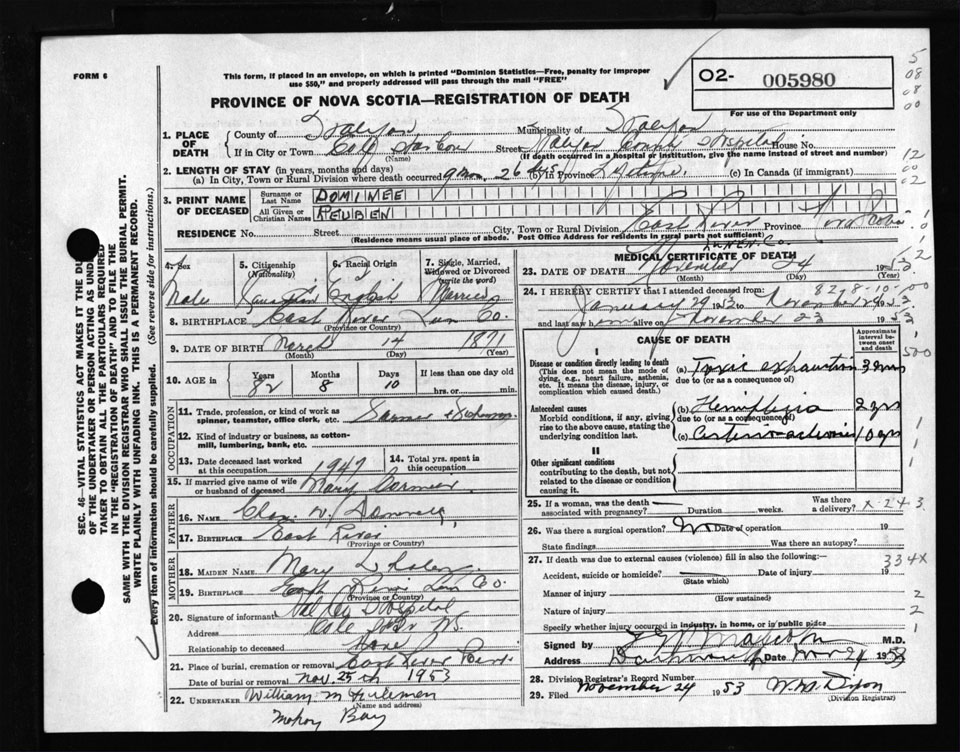 FORM 6
This form, if placed in an envelope, on which is printed "Dominion Statistics—Free, penalty for improper
use $50," and properly addressed will pass through the mail "FREE"
PROVINCE OF NOVA SCOTIA—REGISTRATION OF DEATH
O2- 005980
For use of the Department only
5
08
08
00
12
00
02
1. PLACE OF DEATH
County of Halifax Municipality of Halifax
If in City or Town Cole Harbour Street Halifax County Hospital House No.
(Name) (If death occurred in a hospital or institution, give the name instead of street and number)
2. LENGTH OF STAY (in years, months and days)
(a) In City, Town or Rural Division where death occurred 9 mon. 26 days (b) In Province Lifetime. (c) In Canada (if immigrant)
3. PRINT NAME OF DECEASED
Surname or Last Name DOMINEE
All Given or Christian Names REUBEN
RESIDENCE No. Street City, Town or Rural Division East River Province Nova Scotia
(Residence means usual place of abode. Post Office Address for residents in rural parts not sufficient)
LUNEN. Co.
4. Sex Male
5. Citizenship (Nationality) Canadian
6. Racial Origin English
7. Single, Married, Widowed or Divorced (write the word) Married
8. BIRTHPLACE East River Lun Co.
(Province or Country)
9. DATE OF BIRTH March 14 1871
(Month) (Day) (Year)
10. AGE in Years Months Days If less than one day
82 8 10 hrs. or min.
OCCUPATION
11. Trade, profession, or kind of work as spinner, teamster, office clerk, etc. Farmer
12. Kind of industry or business, as cotton-mill, lumbering, bank, etc.
13. Date deceased last worked at this occupation 1947
14. Total yrs. spent in this occupation
15. If married give name of wife or husband of deceased Mary
FATHER
16. NAME
17. BIRTHPLACE East River
(Province or Country)
MOTHER
18. MAIDEN NAME Mary
19. BIRTHPLACE East River Lun Co.
(Province or Country)
20. Signature of informant Hospital
Address Cole Hbr NS.
Relationship to deceased None
21. Place of burial, cremation or removal East River
Date of burial or removal Nov. 25th 1953
22. UNDERTAKER William M
(Name and address)
Mahon Bay
MEDICAL CERTIFICATE OF DEATH
23. DATE OF DEATH November 24 1953
(Month) (Day)
24. I HEREBY CERTIFY that I attended deceased from: 8278-10-00
January 29 1953 to November 24 1953.
and last saw him alive on November 23 1953
CAUSE OF DEATH
Approximate interval between onset and death
I
Disease or condition directly leading to death
(This does not mean the mode of dying, e.g., heart failure, asthenia, etc. It means the disease, injury, or complication which caused death.)
(a) Toxic exhaustion 3 mos
due to (or as a consequence of)
Antecedent causes
Morbid conditions, if any, giving rise to the above cause, stating the underlying condition last.
(b) Hemiplegia 2 yrs
due to (or as a consequence of)
(c) Arterio-sclerosis 10 yrs
II
Other significant conditions
contributing to the death, but not related to the disease or condition causing it.
500
25. If a woman, was the death associated with pregnancy? Duration weeks. Was there a delivery? x243
26. Was there a surgical operation? No Date of operation 19
State findings Was there an autopsy?
27. If death was due to external causes (violence) fill in also the following:— 334x
Accident, suicide or homicide? Date of injury 19
(State which)
Manner of injury 2
(How sustained)
Nature of injury 2
Specify whether injury occurred in industry, in home, or in public place 1
Signed by M.D.
Address Dartmouth Date Nov 24 1953
28. Division Registrar's Record Number
29. Filed November 24 1953 W. M. Dixon
(Division Registrar)
SEC. 46- VITAL STATISTICS ACT MAKES IT THE DU
OF THE UNDERTAKER OR PERSON ACTING AS UND
TAKER TO OBTAIN ALL THE PARTICULARS REQUIRED
IN THE "REGISTRATION OF DEATH" AND TO FILE THE
SAME WITH THE DIVISION REGISTRAR WHO SHALL ISSUE THE BURIAL PERMIT.
WRITE PLAINLY WITH UNFADING INK. THIS IS A PERMANENT RECORD.
Every item of information should be carefully supplied. (See reverse side for instructions.)